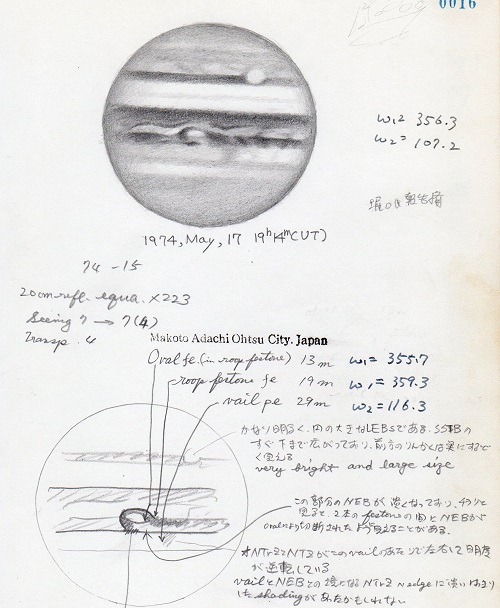 0016
ω1= 356.3
ω2= 107.2
1974, May, 17 19h14m(UT)
74 - 15
20cm refl. equa. ×223
Seeing 7 → 7(4)
Transp. 4
Makoto Adachi Ohtsu City. Japan
Oval fe. (in roop festone) 13m ω1= 355.7
roop festone fe 19m ω1= 359.3
vail pe 29m ω2= 116.3
かなり明るく、内の大きなLEBsである。SSTBの
すぐ下まで広がっており、前方のりんかくは実にするどく
見える
very bright and large size
この部分のNEBが淡くなっており、チラリと
見ると、2本のfestoneの間とNEBが
ovalによって断されたように見えることがある。
オNTrZとNTZがこのvailのあたりで左右して明度
が逆転している
vailとNEBとの境になNTrZ n edgeに淡い
したshadingがあったかもしれない